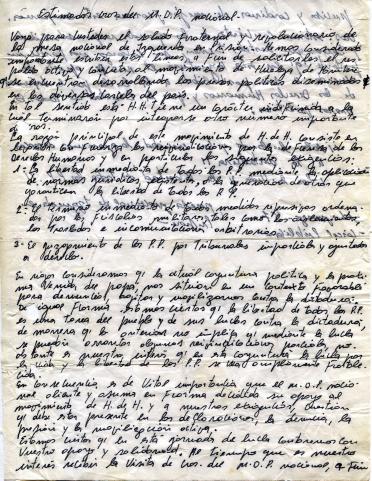 Estimados cros. del M.D.P. nacional.
Vaya para ustedes el saludo fraternal y revolucionario de
la mesa nacional de Izquierda en prisión. Hemos considerado
importante escribir estas líneas a fin de solicitarles el res-
paldo activo y al movimiento de Huelga de Hambre
que se encuentran desarrollando los presos políticos diseminados
en las distintas cárceles del país.
En tal sentido esta H.H. tiene un carácter indefinida a la
cual terminarán por integrarse otro número importante
de cros.
La razón principal de este movimiento de H. de H. consiste en
levantar con fuerza las reivindicaciones por la defensa de los
Derechos Humanos y en particular las siguientes exigencias:
1.- La libertad inmediata de todos los P.P. mediante la
de normas jurídicas existentes, o la generación de otras que
garanticen la libertad de todos los P.P.
2.- El término inmediato a todas medidas represivas ordena-
das por las Fiscalías militares, tales como los aislamientos,
los traslados e incomunicaciones arbitrarias.
3.- El juzgamiento de los P.P. por Tribunales imparciales y ajustados
a derecho.
En razón consideramos q' la actual coyuntura política y la próxi-
ma venida del papa, nos sitúan en un contexto favorable
para denunciar, agitar y movilizarnos contra la dictadura.
De igual forma Estamos ciertos q' la libertad de todos los P.P.
es una tarea del pueblo y de sus luchas contra la dictadura,
de manera q' lo anterior no implica q' mediante la lucha
se puedan arrancar algunas reivindicaciones parciales. no
obstante es nuestro interés q' en esta coyuntura la lucha por
la vida y la libertad de los P.P. se vea ampliamente fortale-
cida.
En consecuencia es de vital importancia que el M.D.P. nacio-
nal aliente y asuma en forma decidida su apoyo al
movimiento de H. de H. y a nuestras exigencias,
la presión y la movilización activa.
Estamos ciertos q' en esta jornada de lucha contaremos con
vuestro apoyo y solidaridad. Al tiempo que es nuestro
interés recibir la visita de cros. del M.D.P. nacional, a fin